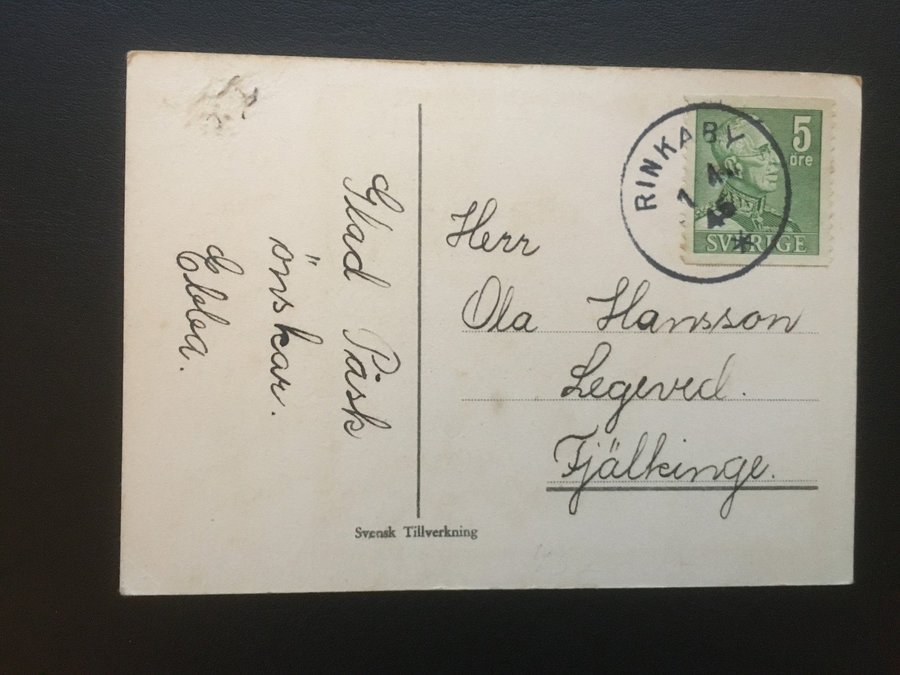 Glad Påsk
önskar.
Ebba.
RINKABY
5
öre
SVERIGE
Herr
Ola Hansson
Legeved.
Fjälkinge.
Svensk Tillverkning